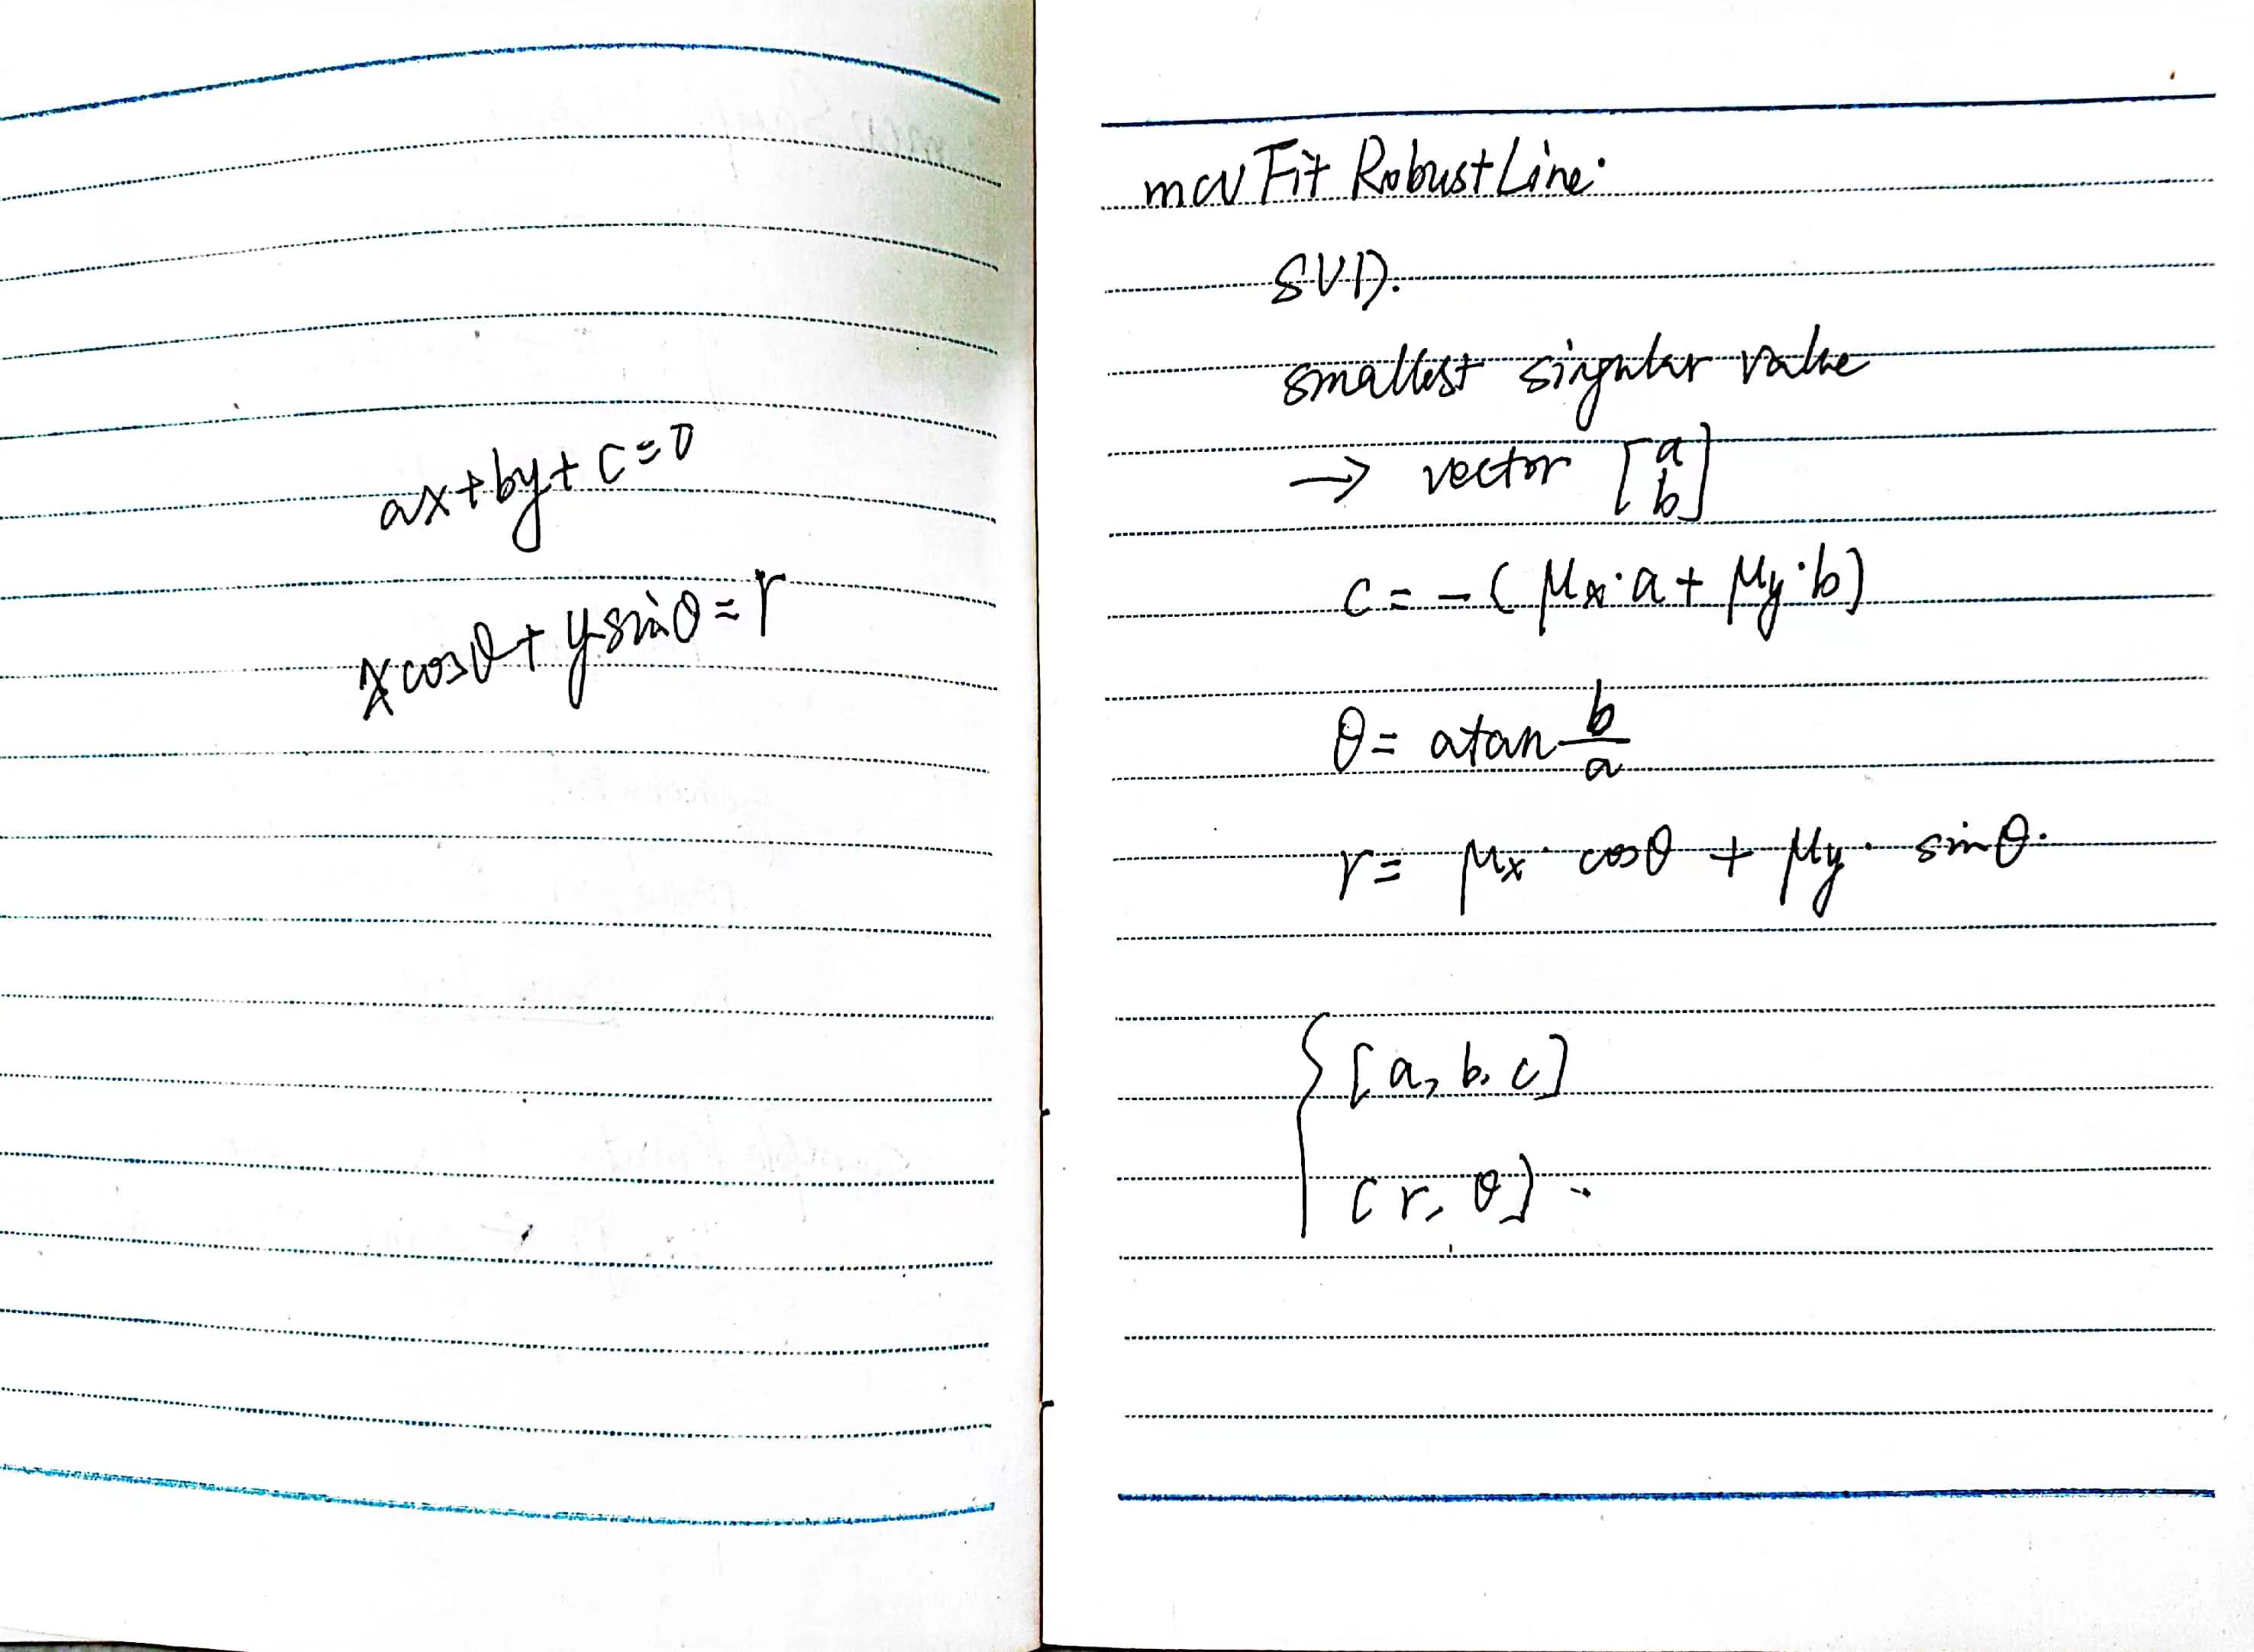 ax+by+c=0
xcosθ+ysinθ=r
mcvFitRobustLine.
SVD.
smallest singular value
→ vector [a
b]
c=-(μx·a+μy·b)
θ= atan b/a
r= μx·cosθ + μy·sinθ.
{[a, b, c]
(r, θ] ..